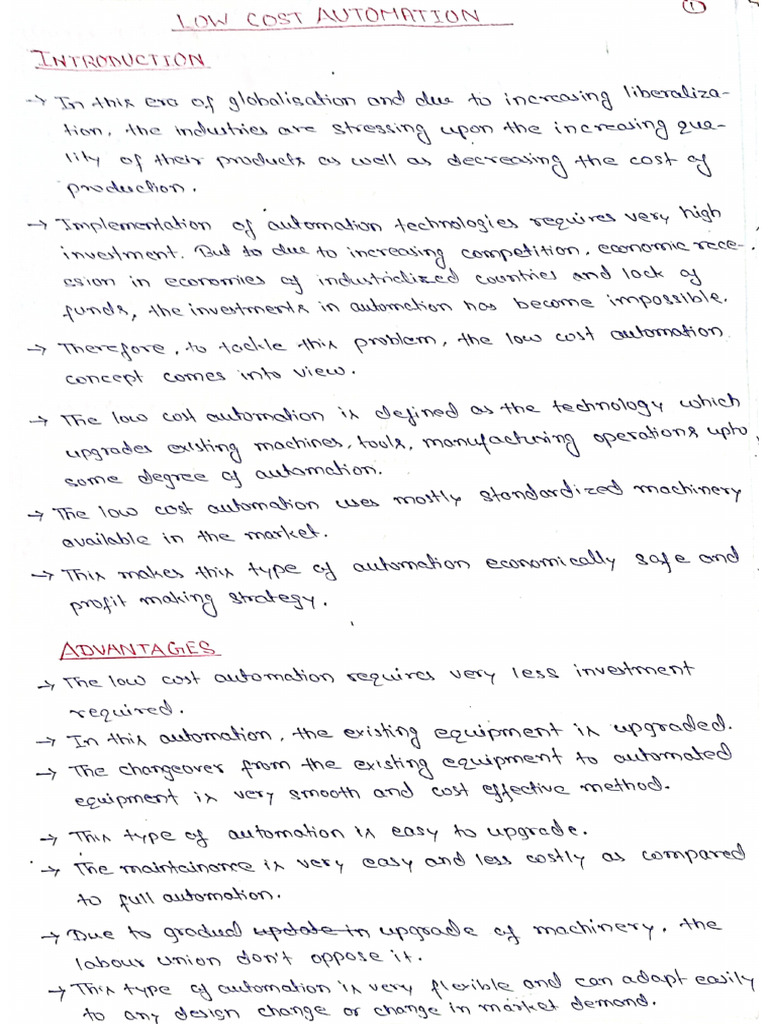 LOW COST AUTOMATION
1
INTRODUCTION
→ In this era of globalisation and due to increasing liberaliza-
tion, the industries are stressing upon the increasing qua-
lity of their products as well as decreasing the cost of
production.
→ Implementation of automation technologies requires very high
investment. But to due to increasing competition, economic rece-
ssion in economies of industrialized countries and lack of
funds, the investments in automation has become impossible.
→ Therefore, to tackle this problem, the low cost automation
concept comes into view.
→ The low cost automation is defined as the technology which
upgrades existing machines, tools, manufacturing operations upto
some degree of automation.
→ The low cost automation uses mostly standardized machinery
available in the market.
→ This makes this type of automation economically safe and
profit making strategy.
ADVANTAGES
→ The low cost automation requires very less investment
required.
→ In this automation, the existing equipment is upgraded.
→ The changeover from the existing equipment to automated
equipment is very smooth and cost effective method.
→ This type of automation is easy to upgrade.
→ The maintainance is very easy and less costly as compared
to full automation.
→ Due to gradual update in upgrade of machinery, the
labour union don't oppose it.
→ This type of automation is very flexible and can adapt easily
to any design change or change in market demand.